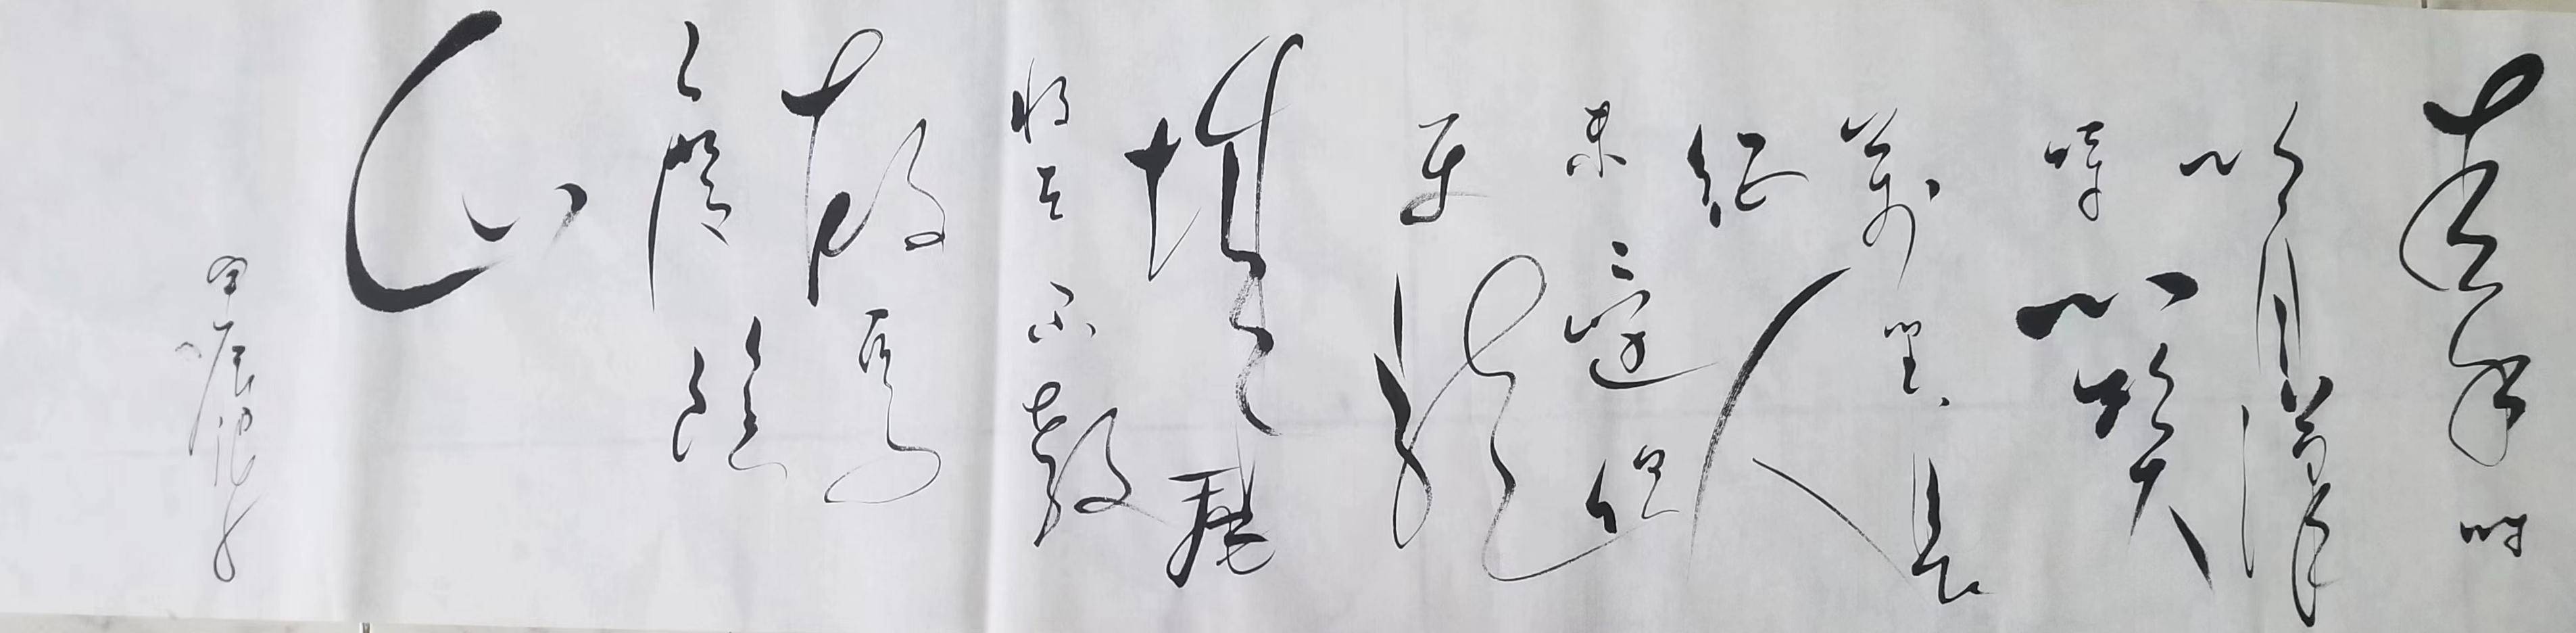 秦时
明月汉
时关
万里长
征人
未还但
使龙
城飞
将在不教
胡马
度阴
山
甲辰